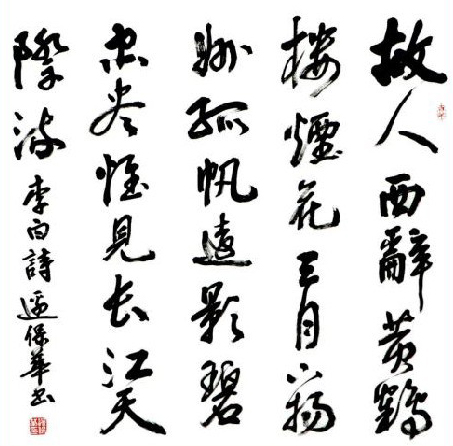 故人西辭黄鶴
楼煙花三月下揚
州孤帆遠影碧
空尽惟見长江天
際流 李白詩 保華书